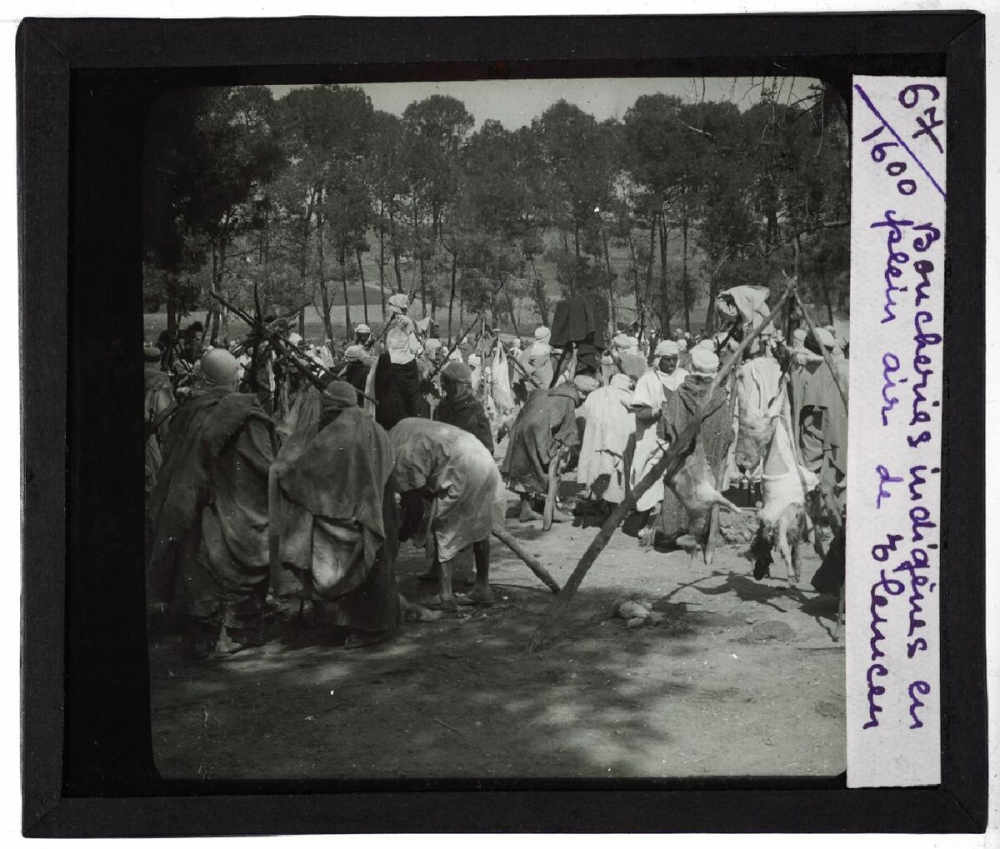 67
1600 Boucheries indigènes en
plein air de Tlemcen